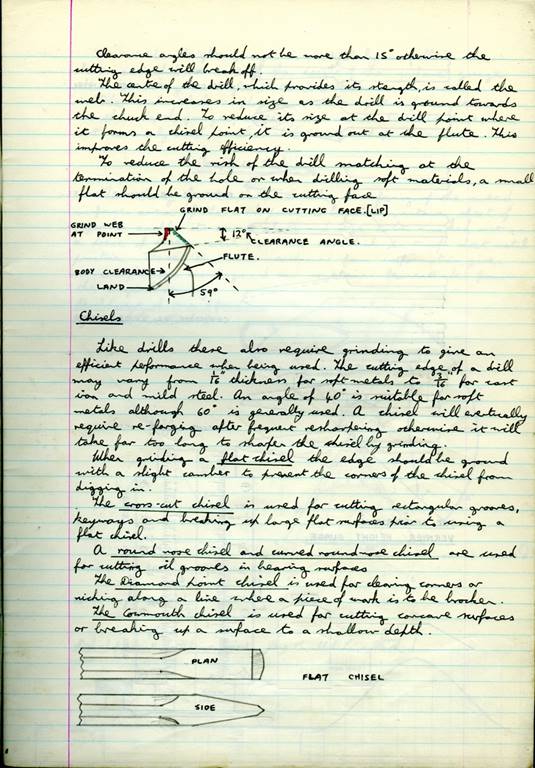 Clearance angles should not be more than 15° otherwise the
cutting edge will break off.
The centre of the drill, which provides its stength, is called the
web. This increases in size as the drill is ground towards
the chuck end. To reduce its size at the drill point where
it forms a chisel point, it is ground out at the flute. This
improves the cutting efficiency.
To reduce the risk of the drill snatching at the
termination of the hole or when drilling soft materials, a small
flat should be ground on the cutting face
GRIND FLAT ON CUTTING FACE.[LIP]
GRIND WEB
AT POINT
12°
CLEARANCE ANGLE.
FLUTE.
BODY CLEARANCE
LAND
59°
Chisels
Like drills these also require grinding to give an
efficient peformance when being used. The cutting edge of a drill
may vary from 1/16" thickness for soft metals to 3/16" for cast
iron and mild steel. An angle of 40° is suitable for soft
metals although 60° is generally used. A chisel will eventually
require re-forging after frequent resharpening otherwise it will
take far too long to shapen the chisel by grinding.
When grinding a flat chisel the edge should be ground
with a slight camber to prevent the corners of the chisel from
digging in.
The cross-cut chisel is used for cutting rectangular grooves,
keyways and breaking up large flat surfaces prior to using a
flat chisel.
A round nose chisel and curved round nose chisel are used
for cutting oil grooves in bearing surfaces
The Diamond point chisel is used for clearing corners or
nicking along a line where a piece of work is to be broken.
The Cowmouth chisel is used for cutting concave surfaces
or breaking up a surface to a shallow depth.
PLAN
FLAT CHISEL
SIDE